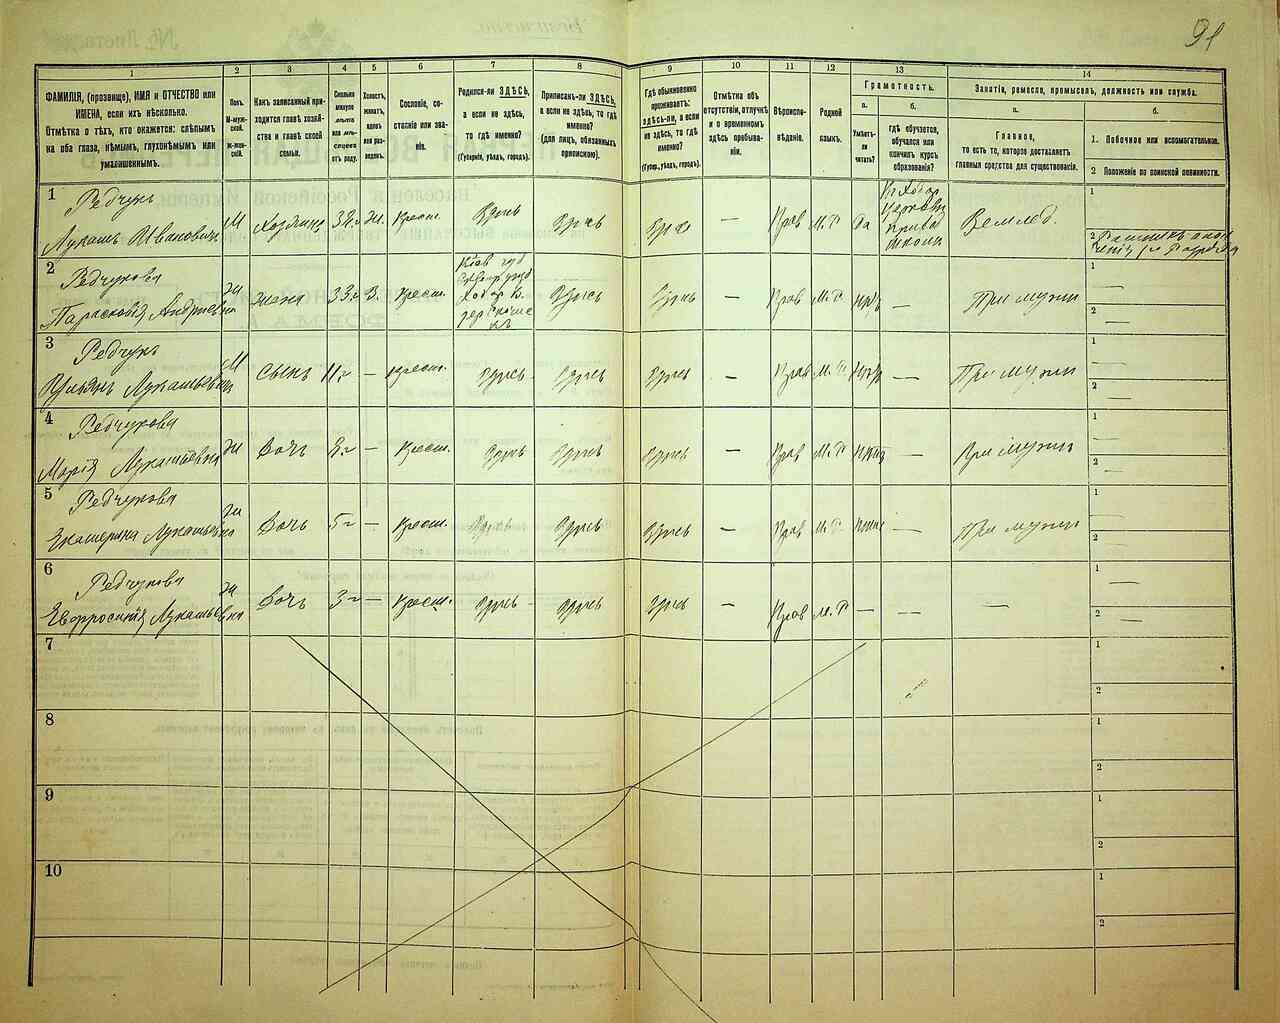 91
1 2 3 4 5 6 7 8 9 10 11 12 13 14
ФАМИЛІЯ, (прозвище), ИМЯ и ОТЧЕСТВО или
ИМЕНА, если ихъ нѣсколько.
Отмѣтка о тѣхъ, кто окажется: слѣпымъ
на оба глаза, нѣмымъ, глухонѣмымъ или
умалишеннымъ.
Полъ.
М-муж-
ской.
Ж-жен-
скій.
Какъ записанный при-
ходится главѣ хозяй-
ства и главѣ своей
семьи.
Сколько
минуло
лѣтъ
или мѣ-
сяцевъ
отъ роду.
Холостъ,
женатъ,
вдовъ
или раз-
веденъ.
Сословіе, со-
стояніе или зва-
ніе.
Родился-ли ЗДѢСЬ,
а если не здѣсь,
то гдѣ именно?
(Губернія, уѣздъ, городъ).
Приписанъ-ли ЗДѢСЬ,
а если не здѣсь, то гдѣ
именно?
(для лицъ, обязанныхъ
припискою).
Гдѣ обыкновенно
проживаетъ:
здѣсь-ли, а если
не здѣсь, то гдѣ
именно?
(Губер., уѣздъ, городъ).
Отмѣтка объ
отсутствіи, отлучкѣ
и о временномъ
здѣсь пребыва-
ніи.
Вѣроиспо-
вѣданіе.
Родной
языкъ.
Грамотность.
а.
Умѣетъ-
ли
читать?
б.
гдѣ обучается,
обучался или
кончилъ курсъ
образованія?
Занятія, ремесло, промыселъ, должность или служба.
а.
Главное,
то есть то, которое доставляетъ
главныя средства для существованія.
б.
1. Побочное или вспомогательное.
2 Положеніе по воинской повинности.
1
Редчукъ
Лукашъ Ивановичъ М Хозяинъ 32г Ж. Крест. Здѣсь Здѣсь Здѣсь — Прав М.Р Да
Землед.
1
2
2
Редчукова
Парасковія Андреевна ж жена 33г З. Крест.
Кіев губ
Здѣсь Здѣсь — Прав М.Р — При мужи
1 —
2 —
3
Редчукъ
Лукашъевичъ М Сынъ 11г — Крест. Здѣсь Здѣсь Здѣсь — Прав М.Р — При мужи
1 —
2 —
4
Редчукова
Марія Лукашъевна ж Дочь 8г — Крест. Здѣсь Здѣсь Здѣсь — Прав М.Р — При мужи
1 —
2 —
5
Редчукова
Екатерина Лукашъевна ж Дочь 5г — Крест. Здѣсь Здѣсь Здѣсь — Прав М.Р — При мужи
1 —
2 —
6
Редчукова
Евфросинія Лукашъевна ж Дочь 3г — Крест. Здѣсь Здѣсь Здѣсь — Прав М.Р — — —
1 —
2 —
7
1
2
8
1
2
9
1
2
10
1
2